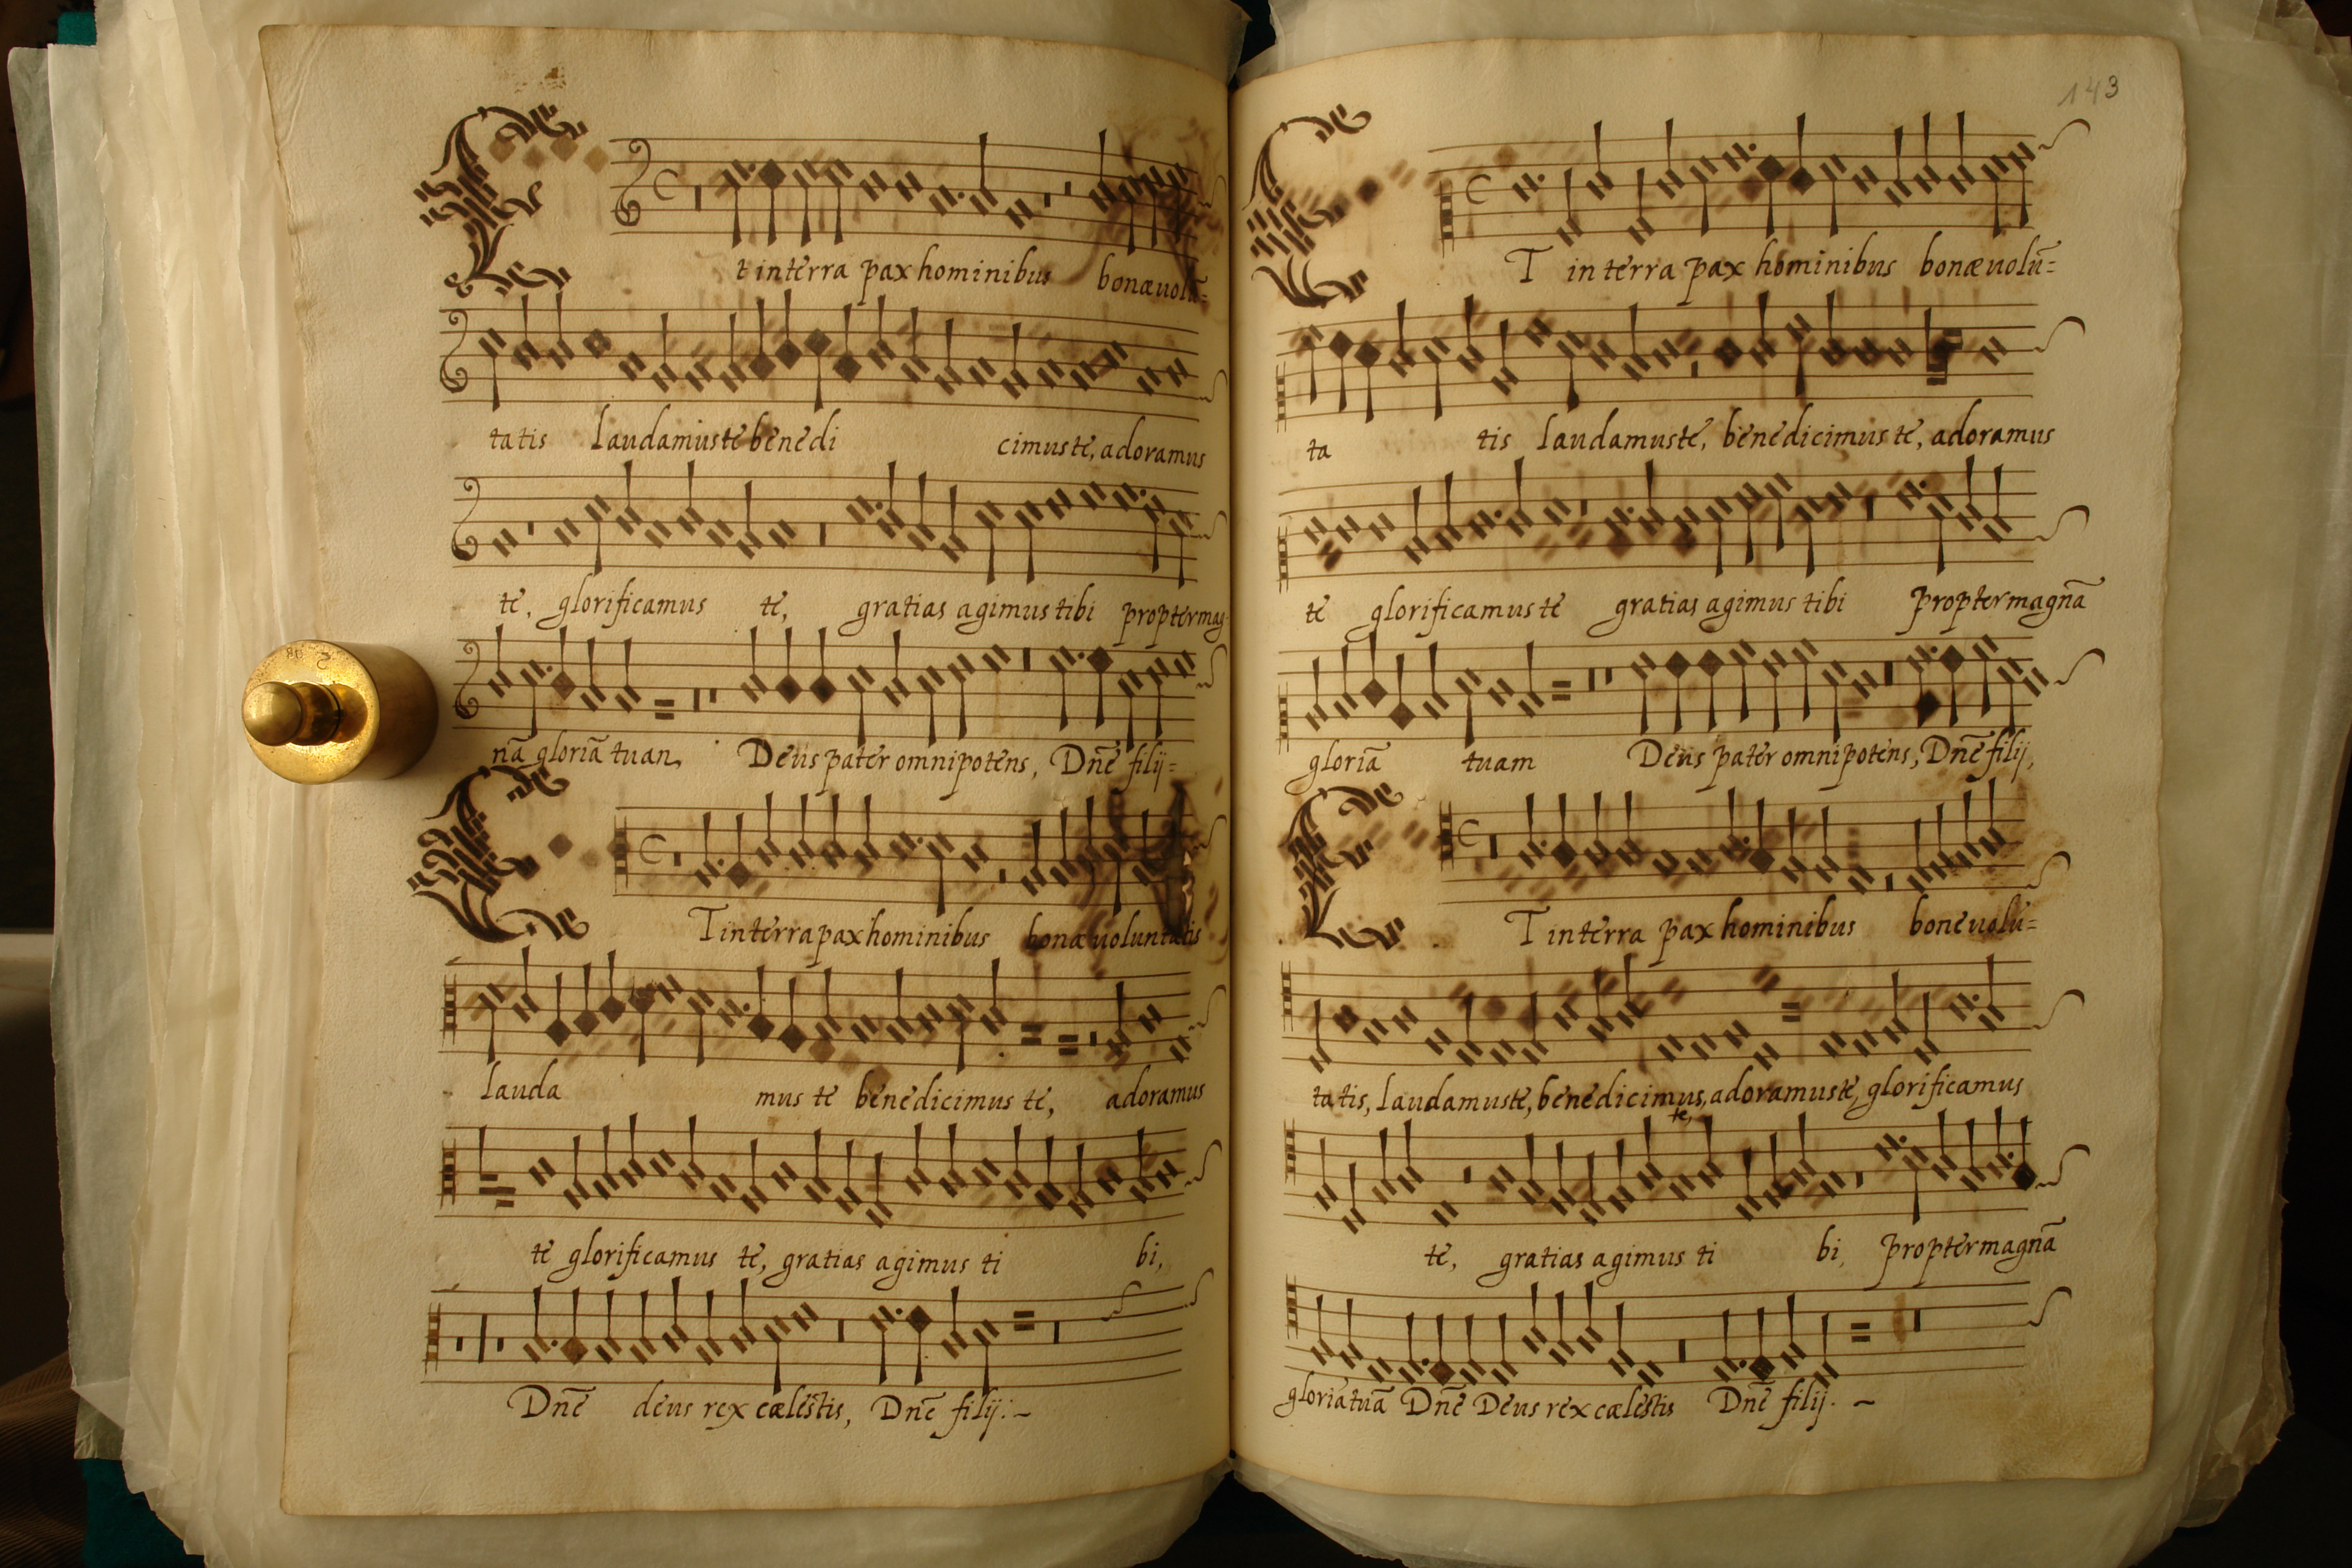 143
Et in terra pax hominibus bonæ uolū=
tatis laudamus te benedi cimus te, adoramus
te, glorificamus te, gratias agimus tibi propter mag
nā gloriā tuam Deus pater omnipotens, Dnē filij=
ET in terra pax hominibus bonæ uoluntatis
lauda mus te benedicimus te, adoramus
te glorificamus te, gratias agimus ti bi,
Dnē deus rex cælestis, Dnē filij:~
ET in terra pax hominibus bonæ uolū=
ta tis laudamus te, benedicimus te, adoramus
te glorificamus te gratias agimus tibi propter magnā
gloriā tuam Deus pater omnipotens, Dnē filij,
ET in terra pax hominibus bone uolū=
tatis, laudamus te, benedicimus te, adoramus te, glorificamus
te, gratias agimus ti bi, propter magnā
gloriā tuā Dnē Deus rex cælestis Dnē filij. ~